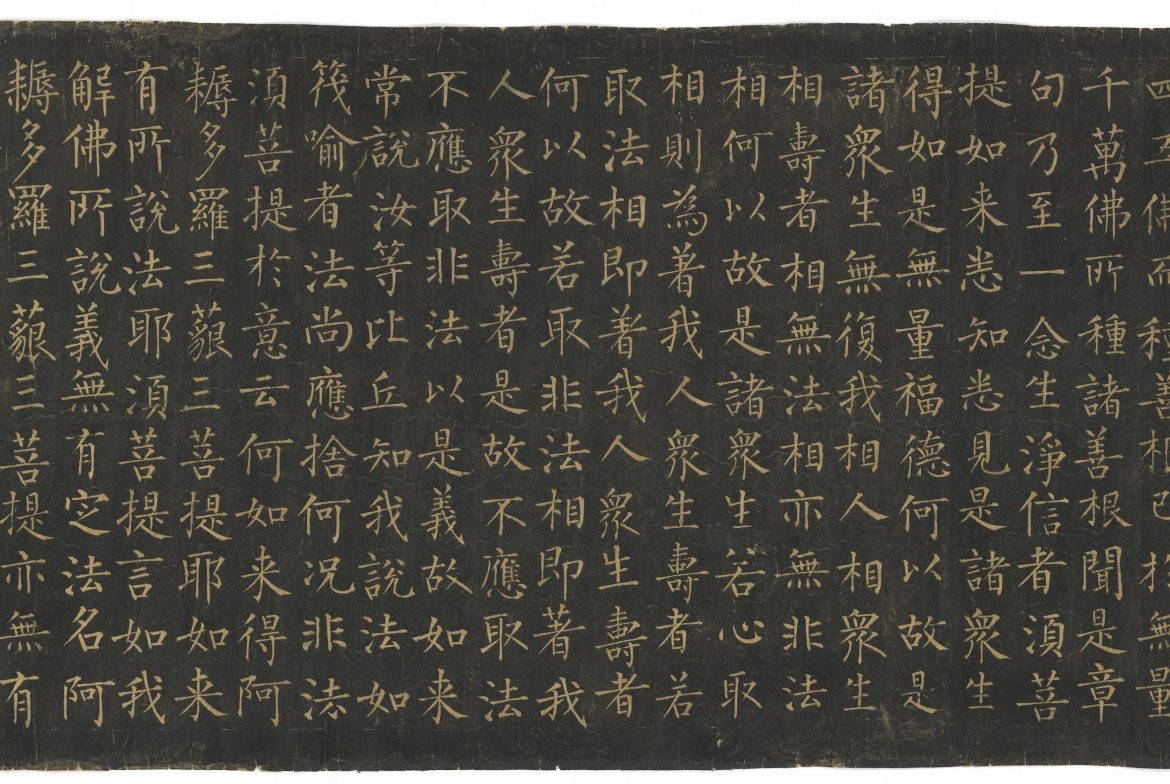 四五佛而種善根已於無量
千萬佛所種諸善根聞是章
句乃至一念生淨信者須菩
提如来悉知悉見是諸眾生
得如是無量福德何以故是
諸眾生無復我相人相眾生
相壽者相無法相亦無非法
相何以故是諸眾生若心取
相則為著我人眾生壽者若
取法相即著我人眾生壽者
何以故若取非法相即著我
人眾生壽者是故不應取法
不應取非法以是義故如来
常說汝等比丘知我說法如
筏喻者法尚應捨何况非法
須菩提於意云何如来得阿
耨多羅三藐三菩提耶如来
有所說法耶須菩提言如我
解佛所說義無有定法名阿
耨多羅三藐三菩提亦無有